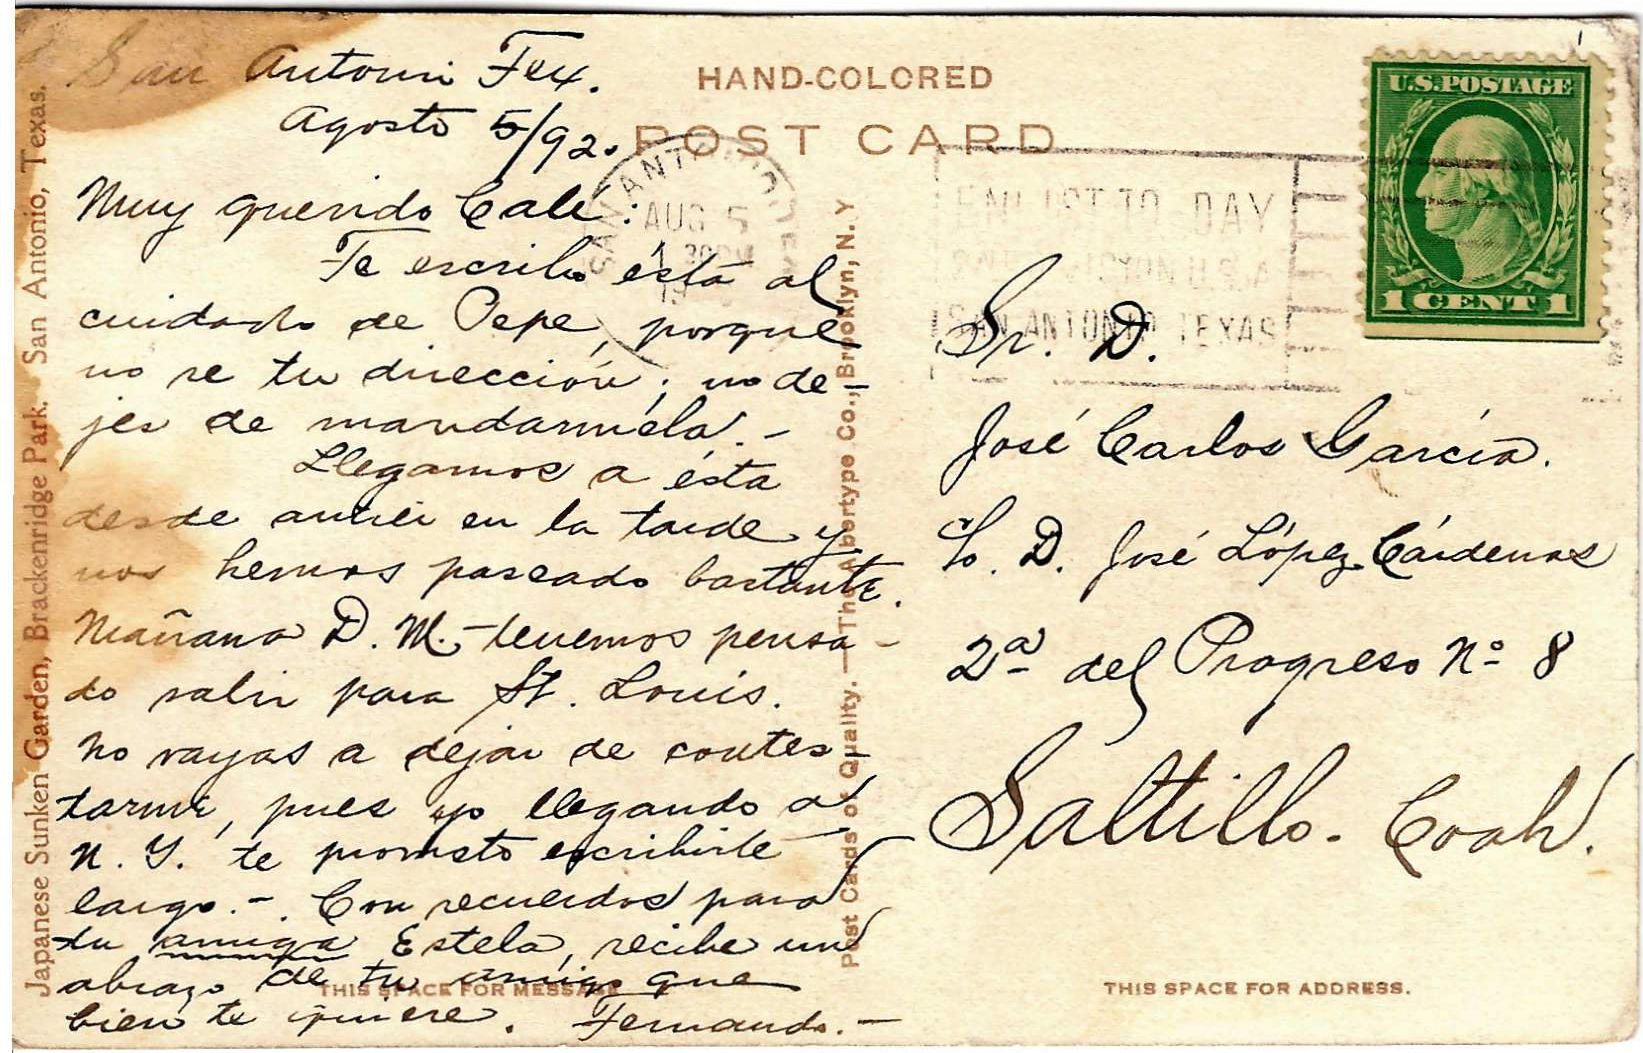 San Antonio Tex.
Agosto 5/92.
Muy querido Cale:
Te escribo ésta al
cuidado de Pepe, porque
no se tu dirección; no de-
jes de mandarméla.-
Llegamos a ésta
desde antier en la tarde y
nos hemos paseado bastante.
Mañana D. M. tenemos pensa-
do salir para St. Louis.
No vayas a dejar de contes-
tarme, pues yo llegando a
N. Y. te prometo escribirte
largo.-. Con recuerdos para
tu amiga Estela, recibe un
abrazo de tu amigo que
bien te quiere. Fernando.-
HAND-COLORED
POST CARD
SAN ANTONIO
AUG 5
30PM
ENLIST TO-DAY
DIVISION U.S.A
SAN ANTONIO TEXAS
U.S.POSTAGE
1 CENT 1
Sr. D.
José Carlos García.
c/o. D. José López Cárdenas
2ª del Progreso Nº 8
Saltillo. Coah.
Japanese Sunken Garden, Brackenridge Park. San Antonio, Texas.
Post Cards of Quality. — The Albertype Co., Brooklyn, N. Y
THIS SPACE FOR MESSAGE
THIS SPACE FOR ADDRESS.